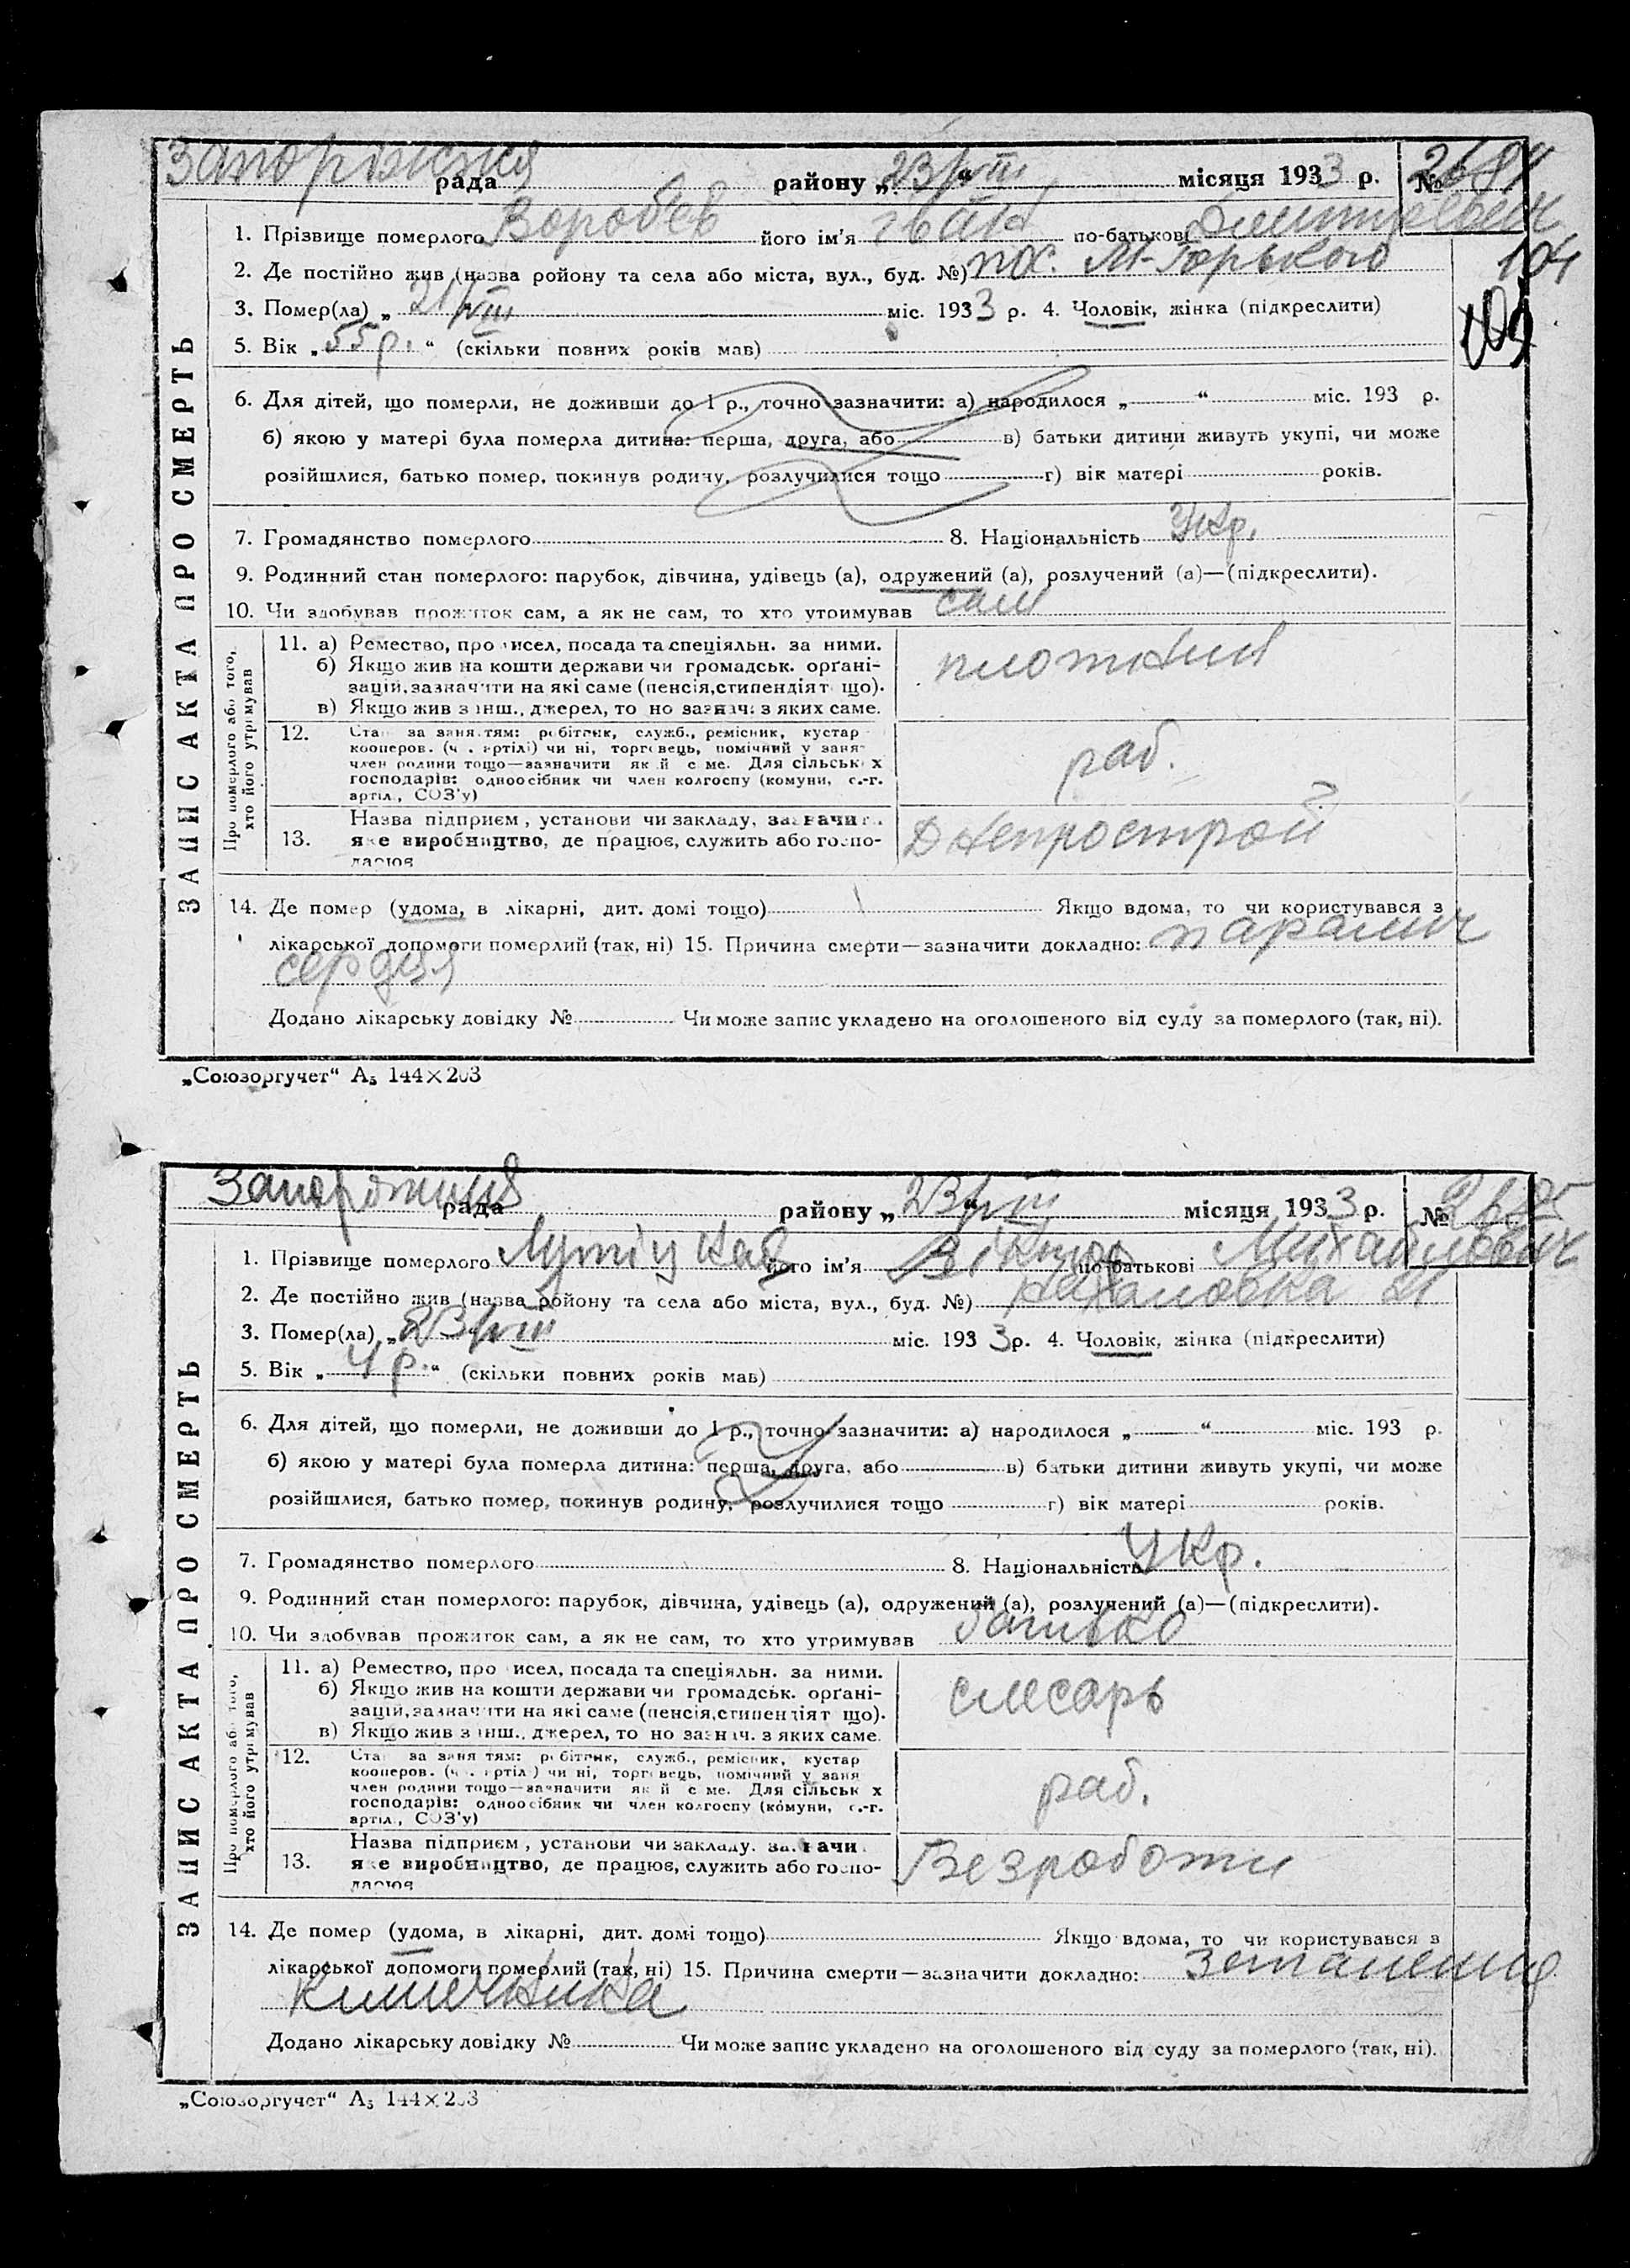 Запоріжжя рада району „23/VIII“ місяця 1933 р. № 2684
1. Прізвище померлого Воробєв його ім'я Іван по-батькові Дмитрович
2. Де постійно жив (назва ройону та села або міста, вул., буд. №) пос. М-Горького
104
3. Помер(ла) „21/VIII міс. 1933 р. 4. Чоловік, жінка (підкреслити)
5. Вік „55 р.“ (скільки повних років мав)
6. Для дітей, що померли, не доживши до 1 р., точно зазначити: а) народилося „ “ міс. 193 р.
б) якою у матері була померла дитина: перша, друга, або в) батьки дитини живуть укупі, чи може
розійшлися, батько помер, покинув родину, розлучилися тощо г) вік матері років.
7. Громадянство померлого 8. Національність Укр.
9. Родинний стан померлого: парубок, дівчина, удівець (а), одружений (а), розлучений (а)—(підкреслити).
10. Чи здобував прожиток сам, а як не сам, то хто утримував сам
ЗАПИС АКТА ПРО СМЕРТЬ
Про померлого або того,
хто його утримував
11. а) Ремество, про исел, посада та спеціяльн. за ними.
б) Якщо жив на кошти держави чи громадськ. орґані-
зацій, зазначити на які саме (пенсія, стипендія т що).
в) Якщо жив з інш., джерел, то но зазнач. з яких саме.
плотник
12. Ста за заняттям: робітник, служб., ремісник, кустар
кооперов. (ч . артілі) чи ні, торговець, помічний у заня-
член родини тощо—зазначити як й с ме. Для сільськ х
господарів: одноосібник чи член колгоспу (комуни, с.-г.
артіл., СОЗ'у)
раб.
13. Назва підприєм , установи чи закладу, зазначи
яке виробництво, де працює, служить або госпо-
дарює
Днепрострой
14. Де помер (удома, в лікарні, дит. домі тощо) Якщо вдома, то чи користувався з
лікарської допомоги померлий (так, ні) 15. Причина смерти—зазначити докладно: паралич
сердця
Додано лікарську довідку № Чи може запис укладено на оголошеного від суду за померлого (так, ні).
„Союзоргучет“ А₅ 144×203
рада району „23/VIII“ місяця 1933 р. № 2685
1. Прізвище померлого його ім'я Віктор по-батькові Михайлович
2. Де постійно жив (назва ройону та села або міста, вул., буд. №) 21
3. Помер(ла) „23/VIII міс. 1933 р. 4. Чоловік, жінка (підкреслити)
5. Вік „4 р.“ (скільки повних років мав)
6. Для дітей, що померли, не доживши до 1 р., точно зазначити: а) народилося „ “ міс. 193 р.
б) якою у матері була померла дитина: перша, друга, або в) батьки дитини живуть укупі, чи може
розійшлися, батько помер, покинув родину, розлучилися тощо г) вік матері років.
7. Громадянство померлого 8. Національність Укр.
9. Родинний стан померлого: парубок, дівчина, удівець (а), одружений (а), розлучений (а)—(підкреслити).
10. Чи здобував прожиток сам, а як не сам, то хто утримував батько
ЗАПИС АКТА ПРО СМЕРТЬ
Про померлого або того,
хто його утримував
11. а) Ремество, про исел, посада та спеціяльн. за ними.
б) Якщо жив на кошти держави чи громадськ. орґані-
зацій, зазначити на які саме (пенсія, стипендія т що).
в) Якщо жив з інш., джерел, то но зазнач. з яких саме.
слесарь
12. Ста за заняттям: робітник, служб., ремісник, кустар
кооперов. (ч . артіл ) чи ні, торговець, помічний у заня
член родини тощо—зазначити як й с ме. Для сільськ х
господарів: одноосібник чи член колгоспу (комуни, с.-г.
артіл., СОЗ'у)
раб.
13. Назва підприєм , установи чи закладу, зазначи
яке виробництво, де працює, служить або госпо-
дарює
Безработи
14. Де помер (удома, в лікарні, дит. домі тощо) Якщо вдома, то чи користувався з
лікарської допомоги померлий (так, ні) 15. Причина смерти—зазначити докладно:
кишечника
Додано лікарську довідку № Чи може запис укладено на оголошеного від суду за померлого (так, ні).
„Союзоргучет“ А₅ 144×203